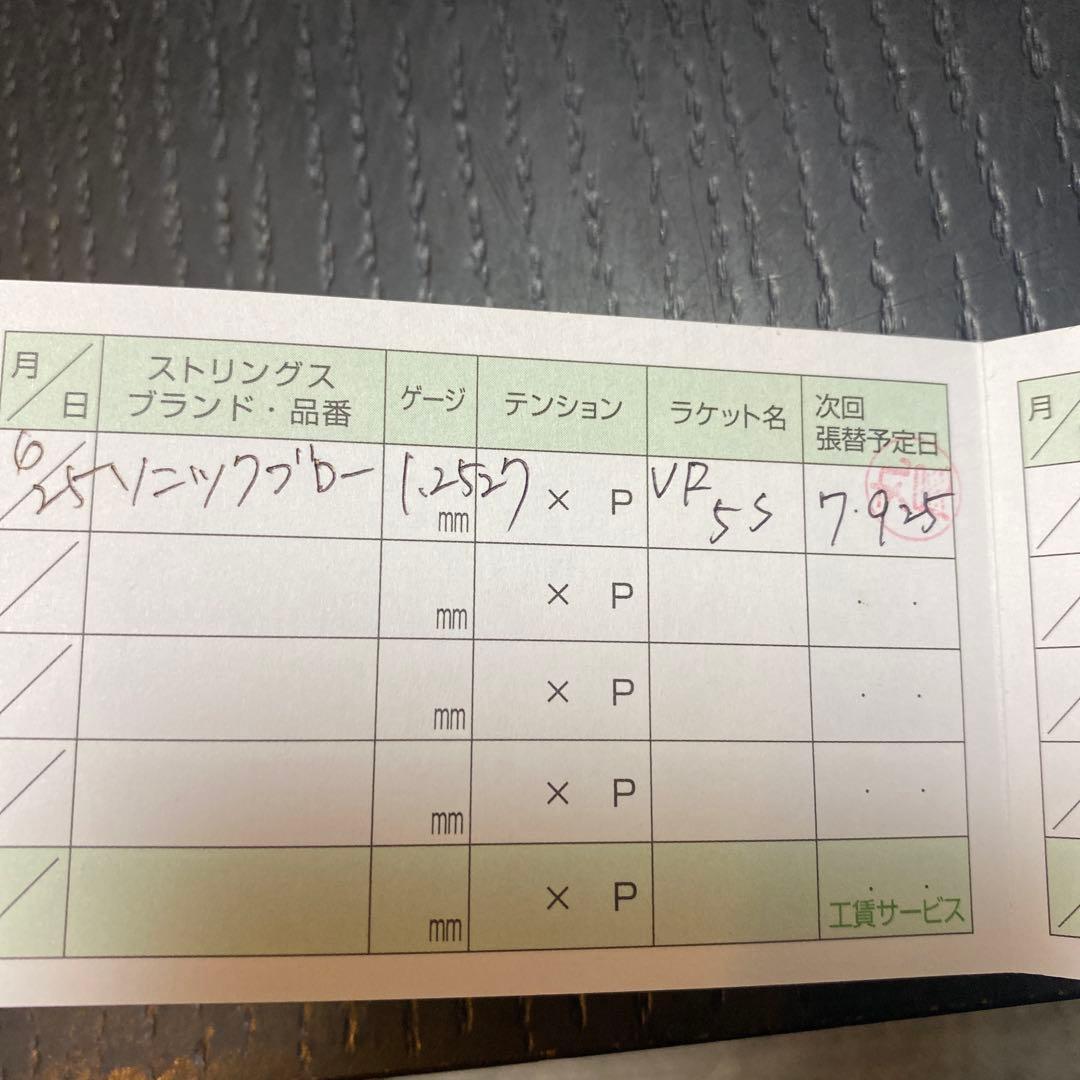 月/日 ストリングス ブランド・品番 ゲージ テンション ラケット名 次回 張替予定日
6/25 ソニックブロー 1.25mm 27 × P VP5S 7.9.25
/ mm × P . .
/ mm × P . .
/ mm × P . .
/ mm × P . . 工賃サービス
月/